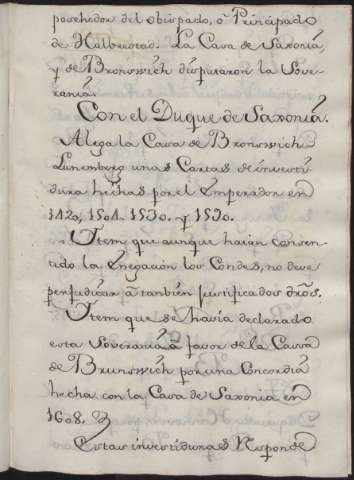 posehedor del obispado, o Principado
de Halberstad. La Casa de Saxonia,
y de Bronswich disputaron la Sove-
rania.
Con el Duque de Saxonia.
Alega la Casa de Bronswich
Lunemberg unas Cartas de investi-
dura hechas por el Emperador en
1420, 1501. 1530. y 1530.
Ytem que aunque haian consen-
tido la enegacion los Condes, no deve
perjudicar à tanbien justificados dros.
Ytem que se havia declarado
esta Soverania à favor de la Cassa
de Brunswich por una Concordia
hecha con la Casa de Saxonia en
1608.
Estas investiduras Responde